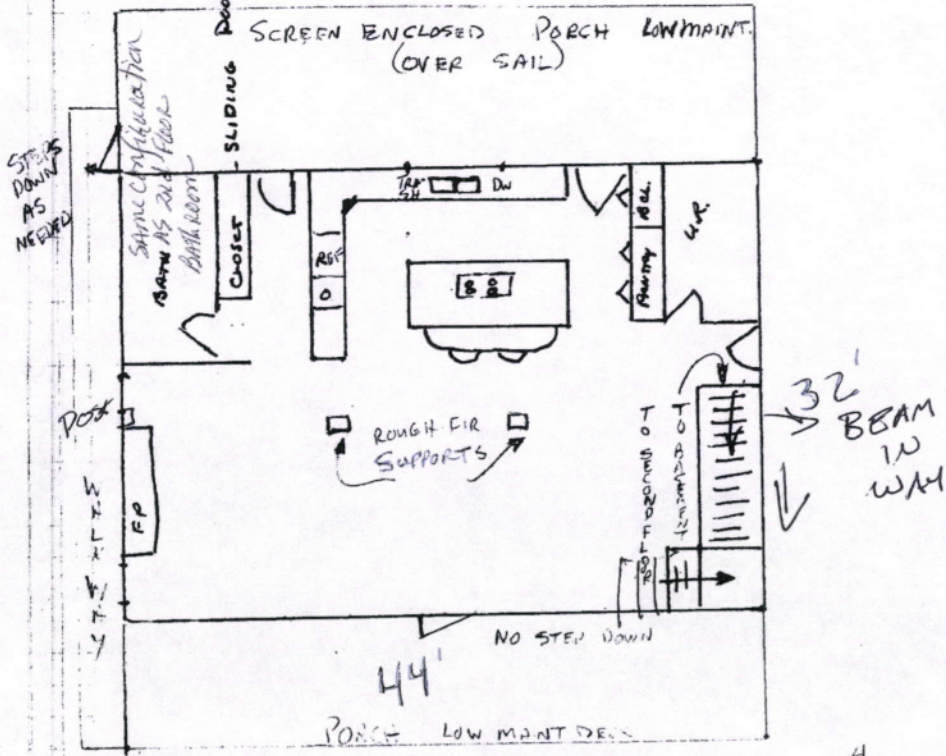 SCREEN ENCLOSED PORCH LOW MAINT.
(OVER SAIL)
SLIDING
STEPS
DOWN
AS
NEEDED
SAME CONFIGURATION
BATH AS 2nd FLOOR
BATHROOM
CLOSET
REF
O
TRASH
DW
PANTRY
POST
FP
WALK WAY
ROUGH FIR
SUPPORTS
TO SECOND FLOOR
TO BASEMENT
32'
BEAM
IN
WAY
NO STEP DOWN
44'
PORCH LOW MANT DE
4